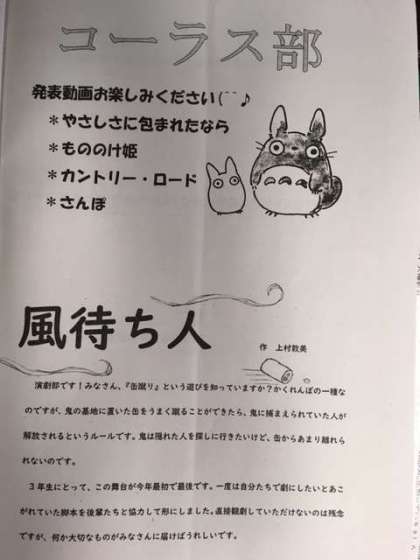 コーラス部
発表動画お楽しみください(⌒⌒♪
＊やさしさに包まれたなら
＊もののけ姫
＊カントリー・ロード
＊さんぽ
風待ち人
作　上村敦美
演劇部です！みなさん、『缶蹴り』という遊びを知っていますか？かくれんぼの一種な
のですが、鬼の基地に置いた缶をうまく蹴ることができたら、鬼に捕まえられていた人が
解放されるというルールです。鬼は隠れた人を探しに行きたいけど、缶からあまり離れら
れないのです。
３年生にとって、この舞台が今年最初で最後です。一度は自分たちで劇にしたいとあこ
がれていた脚本を後輩たちと協力して形にしました。直接観劇していただけないのは残念
ですが、何か大切なものがみなさんに届けばうれしいです。